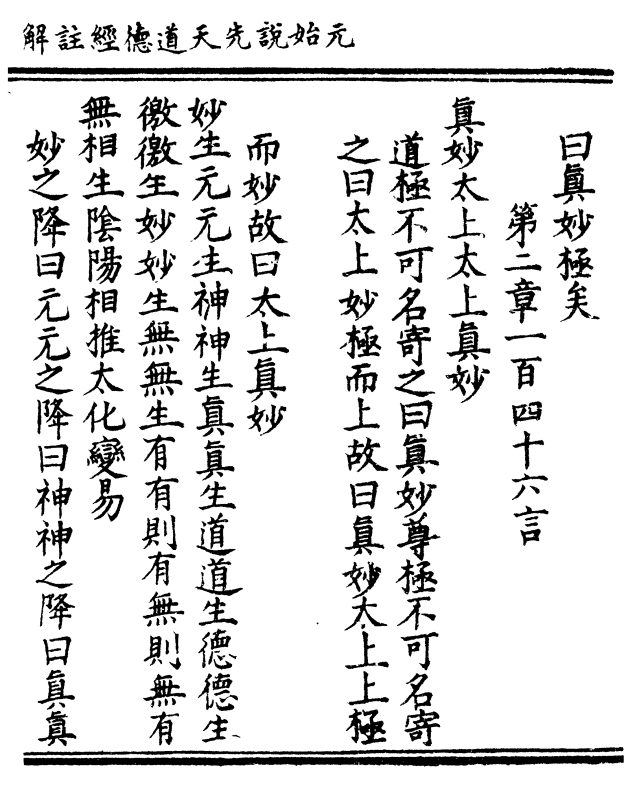 元始說先天道德經註解
曰眞妙極矣
第二章一百四十六言
眞妙太上太上眞妙
道極不可名寄之曰眞妙尊極不可名寄
之曰太上妙極而上故曰眞妙太上上極
而妙故曰太上眞妙
妙生元元生神神生眞眞生道道生德德生
徼徼生妙妙生無無生有有則有無則無有
無相生陰陽相推太化變易
妙之降曰元元之降曰神神之降曰眞眞